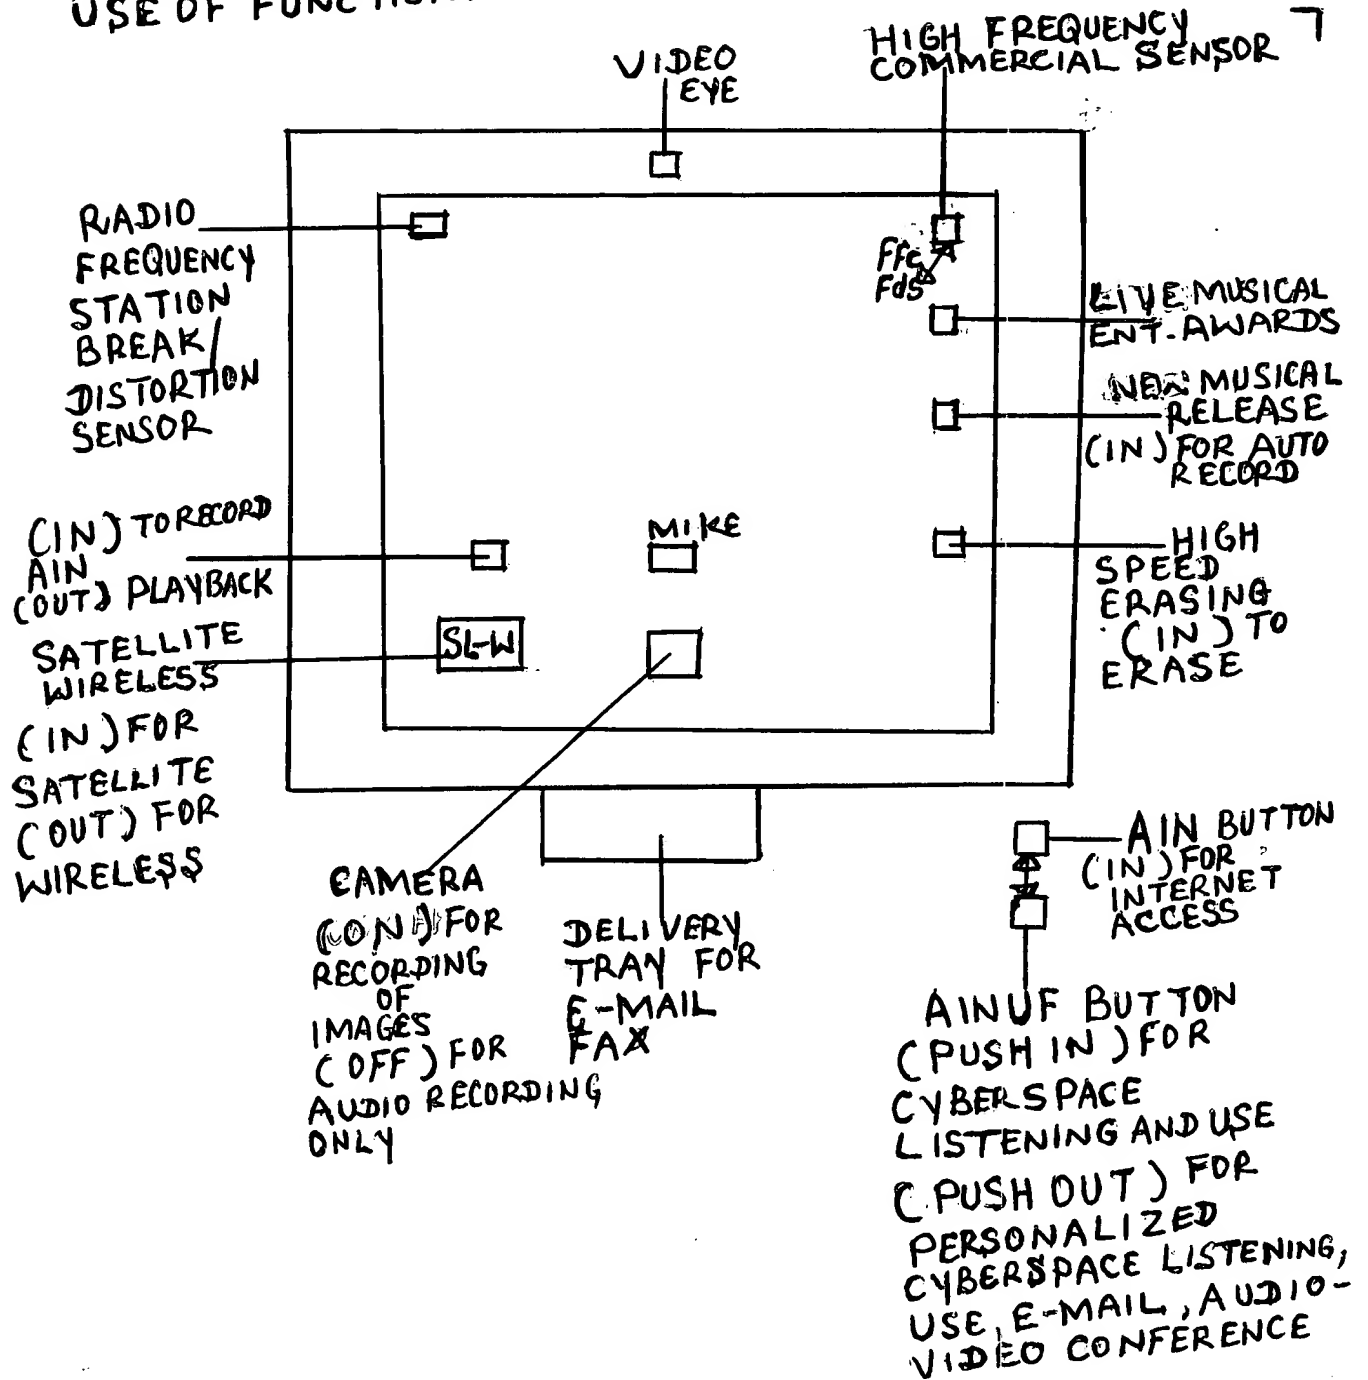 USE OF
7
VIDEO
EYE
HIGH FREQUENCY
COMMERCIAL SENSOR
RADIO
FREQUENCY
STATION
BREAK/
DISTORTION
SENSOR
Ffc
Fds
LIVE MUSICAL
ENT. AWARDS
NEW MUSICAL
RELEASE
(IN) FOR AUTO
RECORD
(IN) TO RECORD
AIN
(OUT) PLAYBACK
MIKE
HIGH
SPEED
ERASING
(IN) TO
ERASE
SATELLITE
WIRELESS
(IN) FOR
SATELLITE
(OUT) FOR
WIRELESS
SL-W
CAMERA
(ON) FOR
RECORDING
OF
IMAGES
(OFF) FOR
AUDIO RECORDING
ONLY
DELIVERY
TRAY FOR
E-MAIL
FAX
AIN BUTTON
(IN) FOR
INTERNET
ACCESS
AINUF BUTTON
(PUSH IN) FOR
CYBERSPACE
LISTENING AND USE
(PUSH OUT) FOR
PERSONALIZED
CYBERSPACE LISTENING,
USE, E-MAIL, AUDIO-
VIDEO CONFERENCE